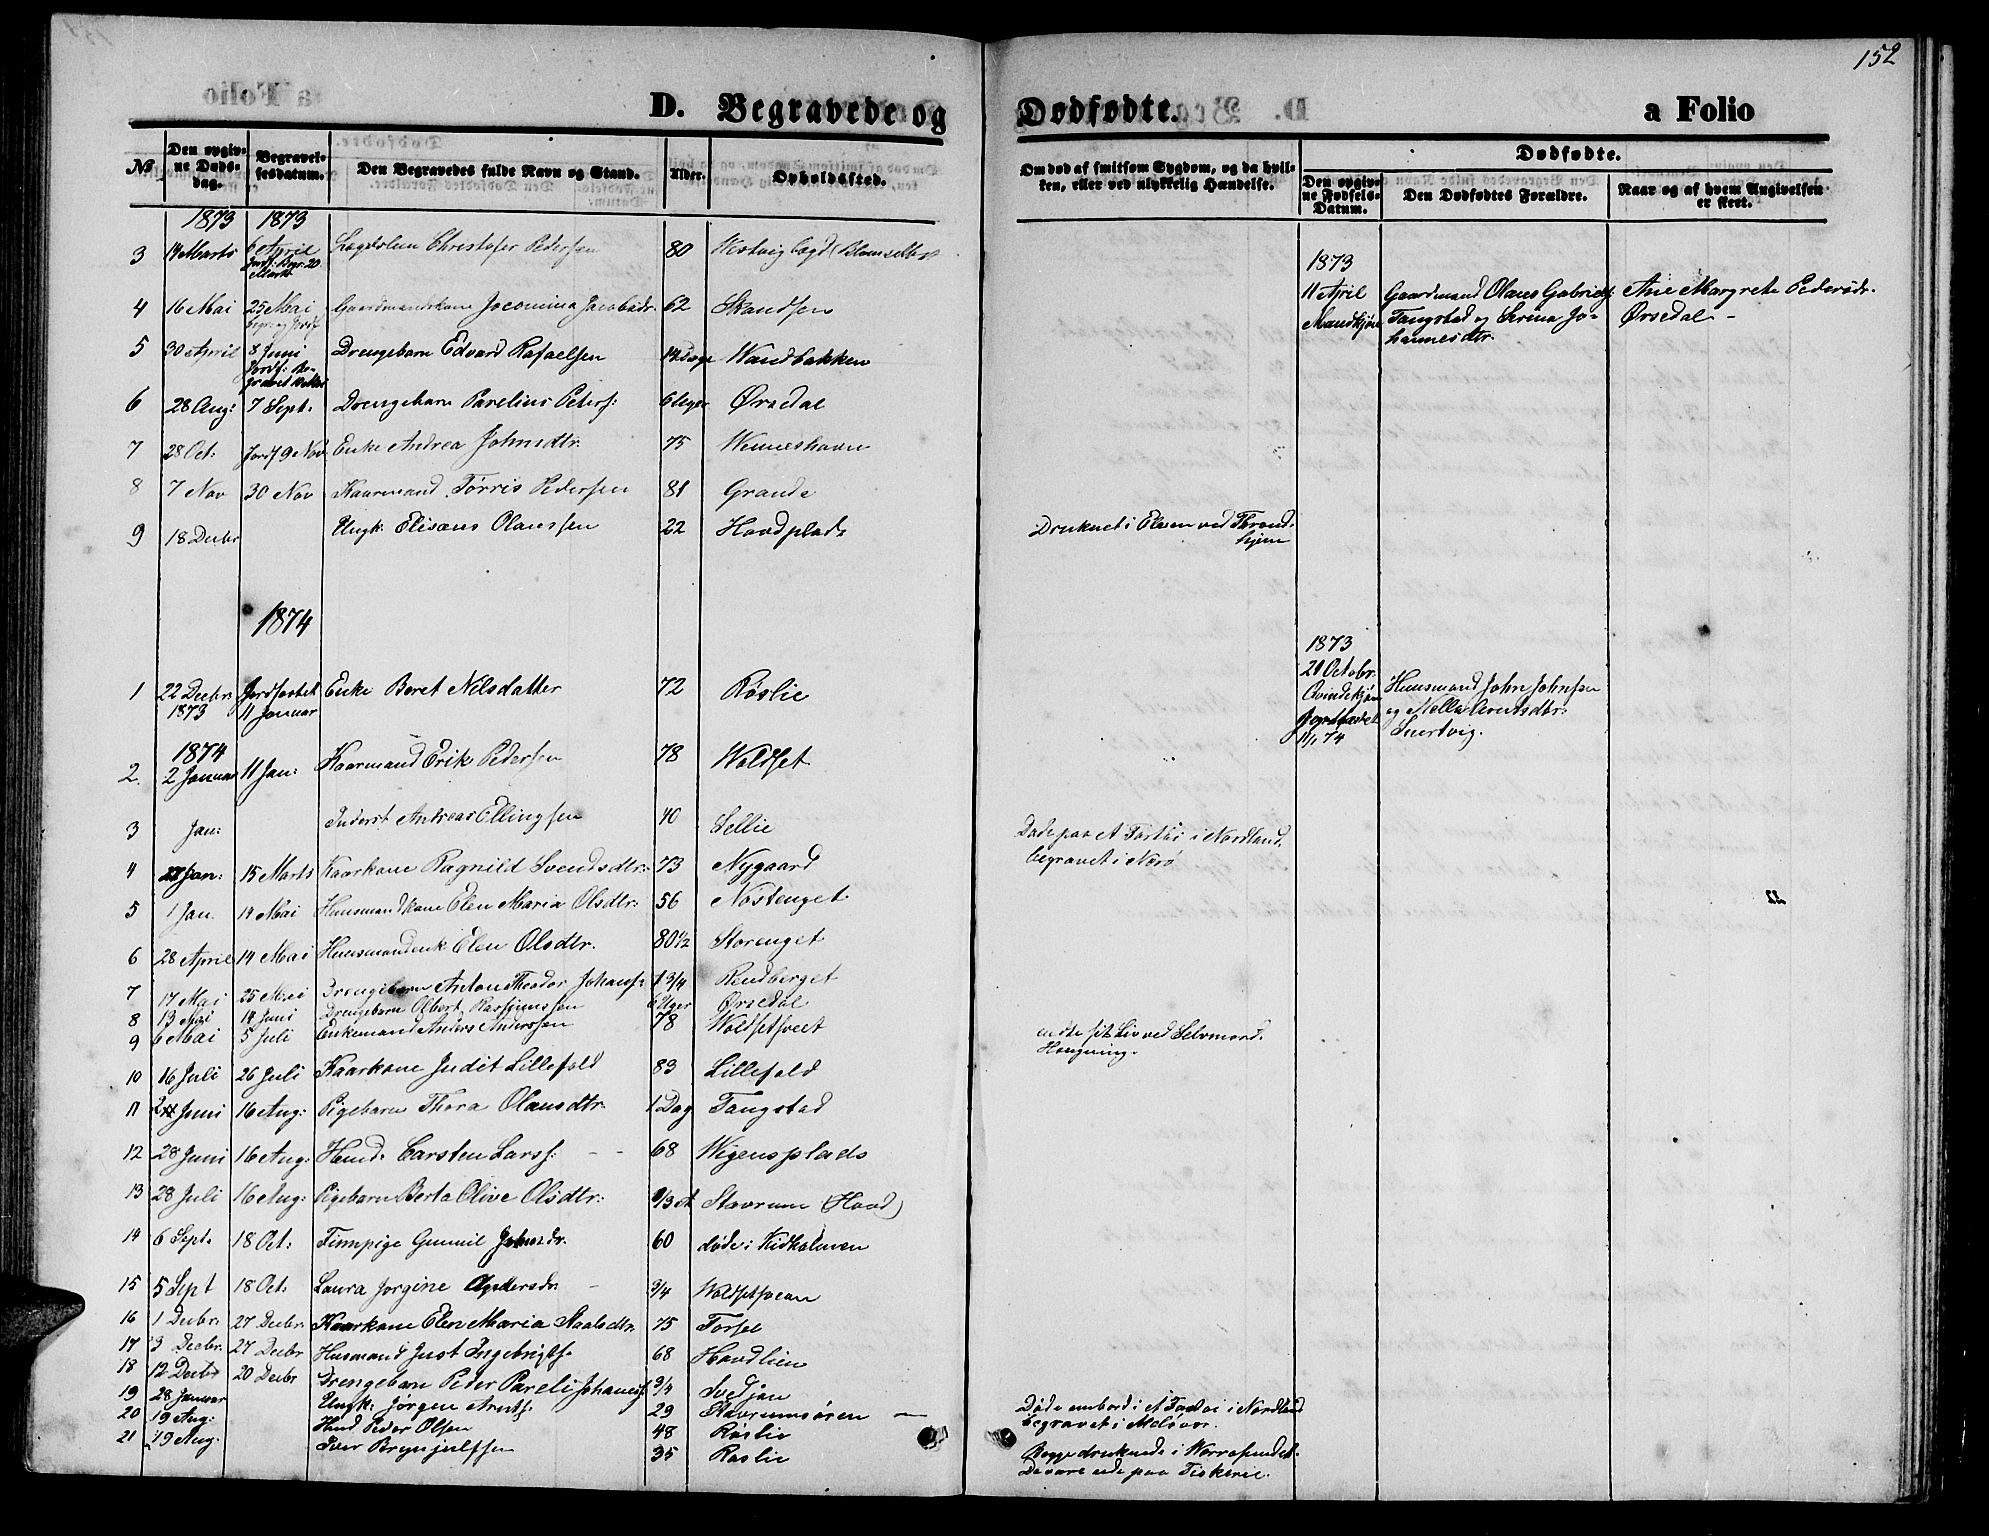 152
D. Begravede og Dødfødte. a Folio
No
Den opgivne Dødsdag.
Begravelsesdatum.
Den Begravedes fulde Navn og Stand.
Alder.
Opholdssted.
Om død af smitsom Sygdom, og da hvilken, eller ved ulykkelig Hændelse.
Dødfødte.
Den opgivne Fødsels-Datum.
Den Dødfødtes Forældre.
Naar og af hvem Angivelsen er skeet.
1873 1873
3 14 Marts 6 April Jordf: Begr. 20 Marts Lægdslem Christofer Pedersen 80 Westvig Lægd
4 16 Mai 25 Mai begr. og Jordf Gaardmandskone Jacomina Jacobsdr. 62 Strandsen
5 30 April 8 Juni Jordf: Drengebarn Edvard Rafaelsen 14 Dage Wandbakken
6 28 Aug: 7 Sept: Drengebarn Parelius Peters: 6 Uger Ørsedal
7 28 Oct: Jordf 9 Nov Enke Andrea Johnsdtr. 75 Wenneshavn
8 7 Nov 30 Nov Kaarmand Tørris Pedersen 81 Grande
9 18 Decbr Ungk: Elisæus Olaussen 22 Hovdplads Druknet i Elven ved Throndhjem
1873
11 April Mandkjøn Gaardmand Olaus Gabriels: Tangstad og Serina Johannesdtr. Ane Margrete Pedersdr. Ørsedal -
1874
1 22 Decbr. 1873 Jordfæstet 11 Januar Enke Beret Nilsdatter 72 Røslie
1873
21 Octobr. Qvindekjøn Begravet 11/1 74 Huusmand John Johnsen og Mella Arntsdtr: Snertvig.
1874
2. 2 Januar 11 Jan: Kaarmand Erik Pedersen 78 Woldset
3 Jan: Inderst Andreas Ellingsen 40 Sellie Døde paa et i Nordland, begravet i Nærø
4 Jan: 15 Marts Kaarkone Ragnild Svendsdtr: 73 Nygaard
5 1 Jan. 14 Mai Huusmandkone Elen Maria Olsdtr: 56 Nøstenget
6 28 April 14 Mai Huusmandenk Elen Olsdtr. 80 1/2 Storenget
7 17 Mai 25 Mai Drengebarn Anton Theodor Johans: 1 3/4 Rendberget
8 13 Mai 14 Juni Drengebarn Olbert Rasmussen 6 Uger Ørsedal
9 6 Mai 5 Juli Enkemand Anders Anderssen 78 Woldsetsveet endte sit Liv ved Selvmord. Hængning.
10 16 Juli 26 Juli Kaarkone Judit Lillefold 83 Lillefold
11 Juni 16 Aug: Pigebarn Thora Olausdtr. 1 Dag Tangstad
12 28 Juni 16 Aug: Husmd: Carsten Larss: - - 68 Wigensplads
13 28 Juli 16 Aug: Pigebarn Berta Olive Olsdtr: Stavrum (Hovd)
14 6 Sept. 18 Oct: Finnpige Gunnil Johnsdr. 60 døde i Kidholmen
15 5 Sept 18 Oct. Laura Jorgine Andersdr. - 3/4
16 1 Decbr. 27 Decbr. Kaarkone Elen Maria Staalsdtr. 75 Torsel
17 3 Decbr. 27 Decbr Husmand Just Ingebrigts. 68 Hovdlien
18 12 Decbr 20 Decbr Drengebarn Peder Pareli Johaness: 3/4 Svedjan
19 28 Januar Ungk: Jørgen Arnts: 29 Stavrumsøren - Døde ombord i et i Nordland begravet i Meløvær.
20 19 Aug: Husmd Peder Olsen 48 Røslie
21 19 Aug. Iver Brynjulfsen 35 Røslie Begge druknede i De vare ude paa Fiskerie.